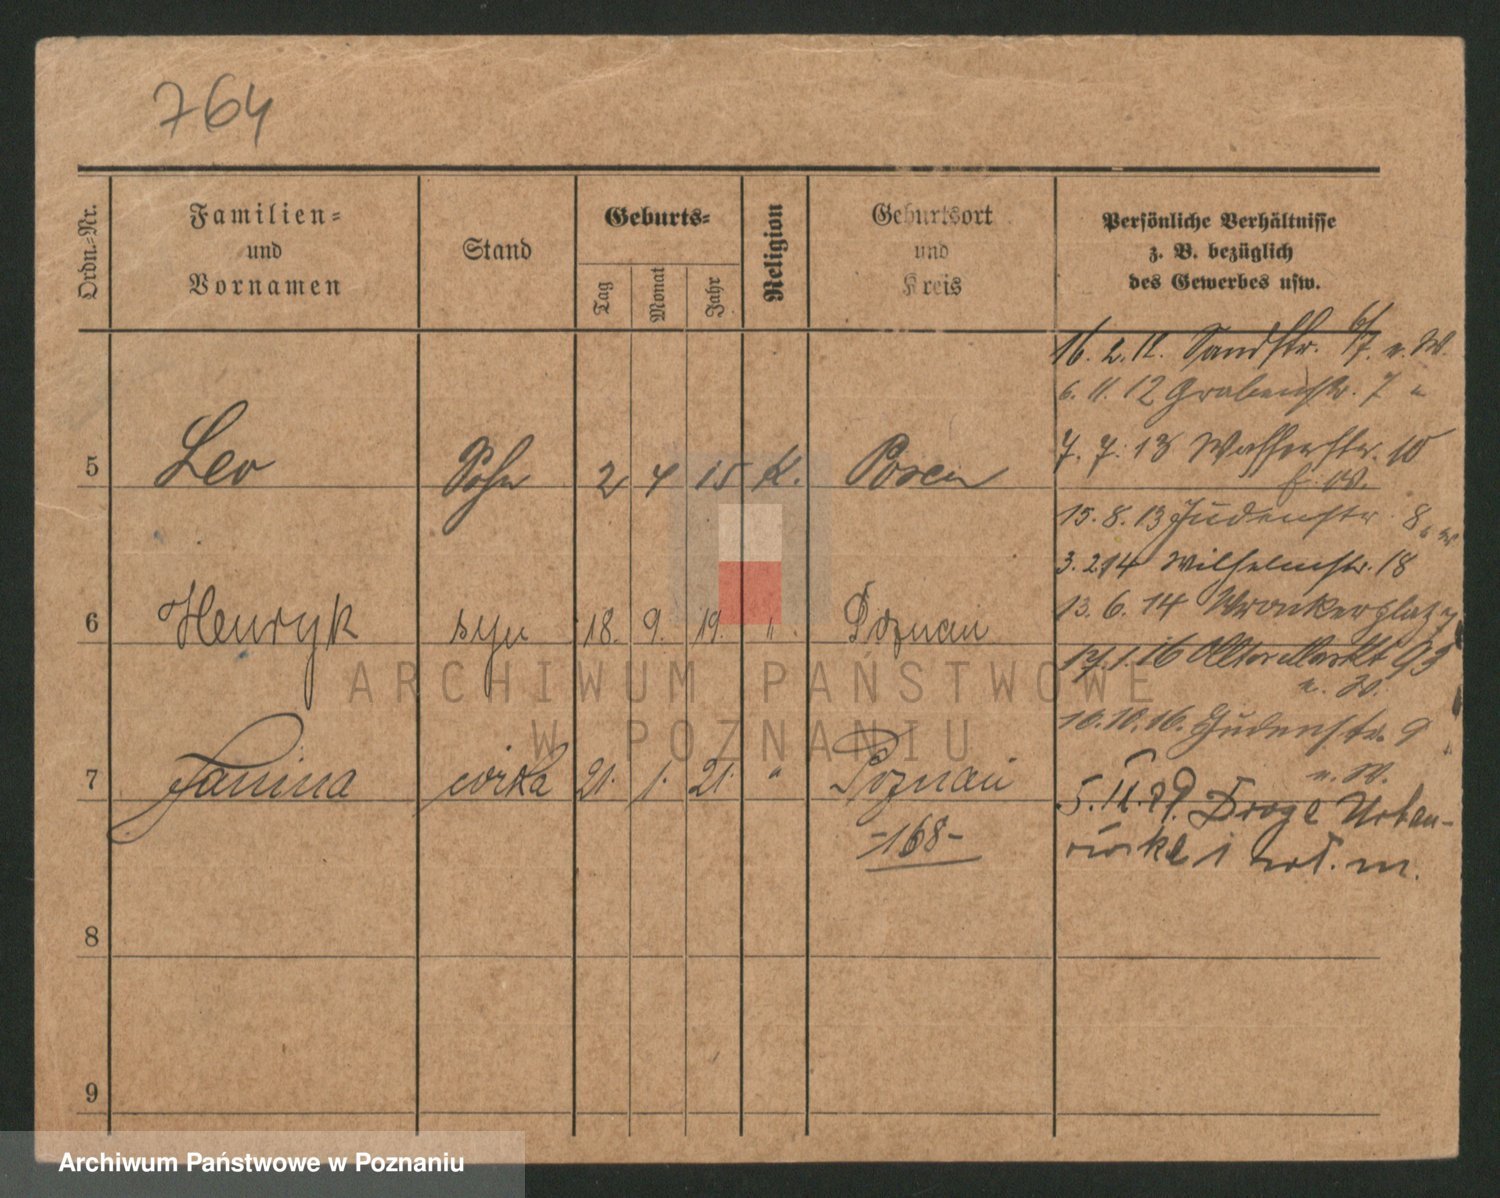 764
Ordn.-Nr.
Familien-
und
Vornamen
Stand
Geburts-
Tag
Monat
Jahr
Religion
Geburtsort
und
Kreis
Persönliche Verhältnisse
z. B. bezüglich
des Gewerbes usw.
16. 2. 12. Sandstr. 6/7. u. W.
6. 11. 12 Grabenstr. 7 "
5 Leo Sohn 2 4 15 K. Posen
7. 7. 13 Wasserstr. 10
15. 8. 13 Judenstr. 8
3. 2 14 Wilhelmstr. 18
6 Henryk syn 18. 9. 19. " Poznań
13. 6. 14 Wronkerplatz
17. 1. 16 Alter Markt 93
u. W.
10. 10. 16. Judenstr. 9
u. W.
7 Janina córka 21. 1. 21. " Poznań
-168-
5. 11. 29. Droga Urban-
owska 1
8
9
ARCHIWUM PAŃSTWOWE
W POZNANIU
Archiwum Państwowe w Poznaniu